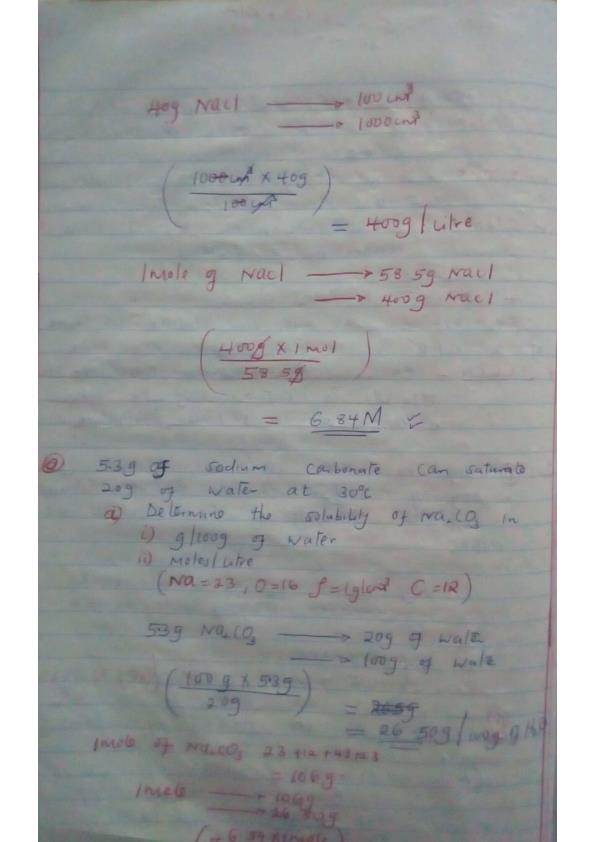 40g NaCl → 100cm³
→ 1000cm³
(1000cm³ × 40g / 100cm³)
= 400g/Litre
1mole g NaCl → 58.5g NaCl
→ 400g NaCl
(400g × 1mol / 58.5g)
= 6.84M
Q 5.3g of sodium carbonate can saturate
20g of water at 30°C
a) Determine the solubility of Na₂CO₃ in
i) g/100g of water
ii) moles/litre
(Na=23, O=16 ρ=1g/cm³ C=12)
5.3g Na₂CO₃ → 20g of water
→ 100g of water
(100g × 5.3g / 20g)
= 265g
= 26.50g/100g g H₂O
1mole of Na₂CO₃
= 106g
1mole → 106g